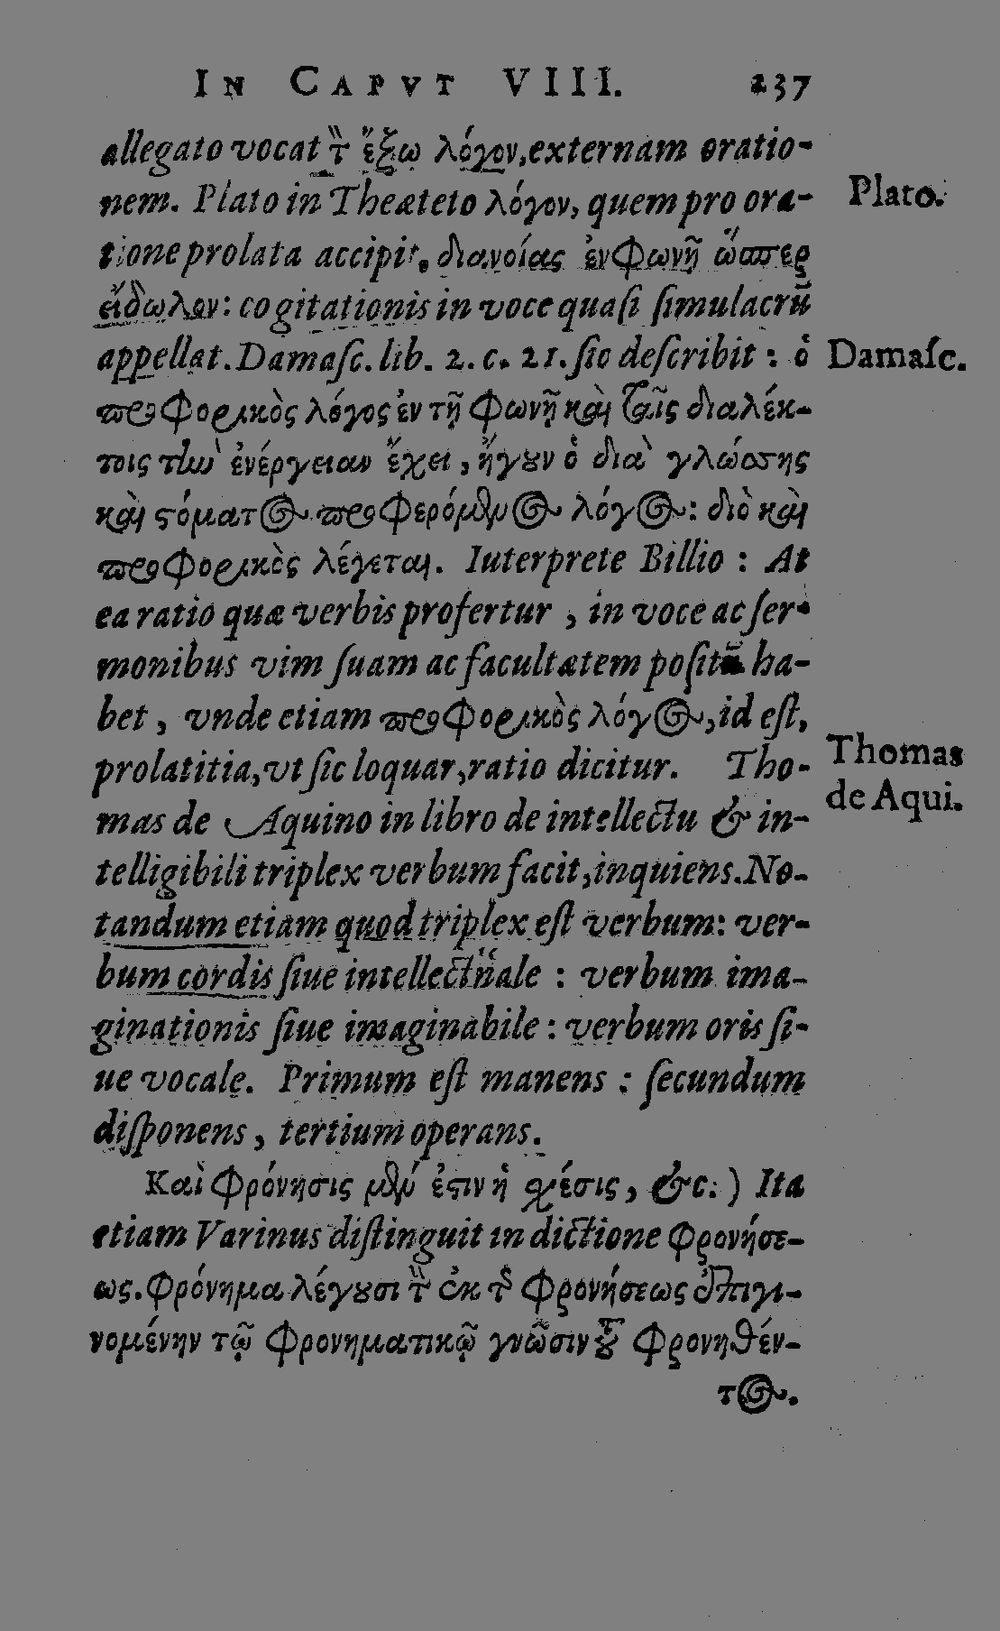 IN CAPVT VIII. 237
allegato vocat τ̀ ἔξω λόγον, externam oratio-
nem. Plato in Theæteto λόγον, quem pro ora-
Plato.
tione prolata accipit, διανοίας ἐν φωνῇ ὥσπερ
εἴδωλον: cogitationis in voce quasi simulacrũ
appellat. Damasc. lib. 2. c. 21. sic describit: ὁ
Damasc.
προφορικὸς λόγος ἐν τῇ φωνῇ καὶ ταῖς διαλέκ-
τοις τὴν ἐνέργειαν ἔχει, ἤγουν ὁ διὰ γλώσσης
καὶ στόματος προφερόμενος λόγος: διὸ καὶ
προφορικὸς λέγεται. Iuterprete Billio: At
ea ratio quæ verbis profertur, in voce ac ser-
monibus vim suam ac facultatem positã ha-
bet, vnde etiam προφορικὸς λόγος, id est,
prolatitia, vt sic loquar, ratio dicitur. Tho-
Thomas
de Aqui.
mas de Aquino in libro de intellectu & in-
telligibili triplex verbum facit, inquiens. No-
tandum etiam quod triplex est verbum: ver-
bum cordis siue intellectuale: verbum ima-
ginationis siue imaginabile: verbum oris si-
ue vocale. Primum est manens: secundum
disponens, tertium operans.
Καὶ φρόνησις μὲν ἐστιν ἡ σχέσις, &c.) Ita
etiam Varinus distinguit in dictione φρονήσε-
ως. φρόνημα λέγουσι τὴν ἐκ τῆς φρονήσεως ἐπιγι-
νομένην τῷ φρονηματικῷ γνῶσιν τοῦ φρονηθέν-
τος.